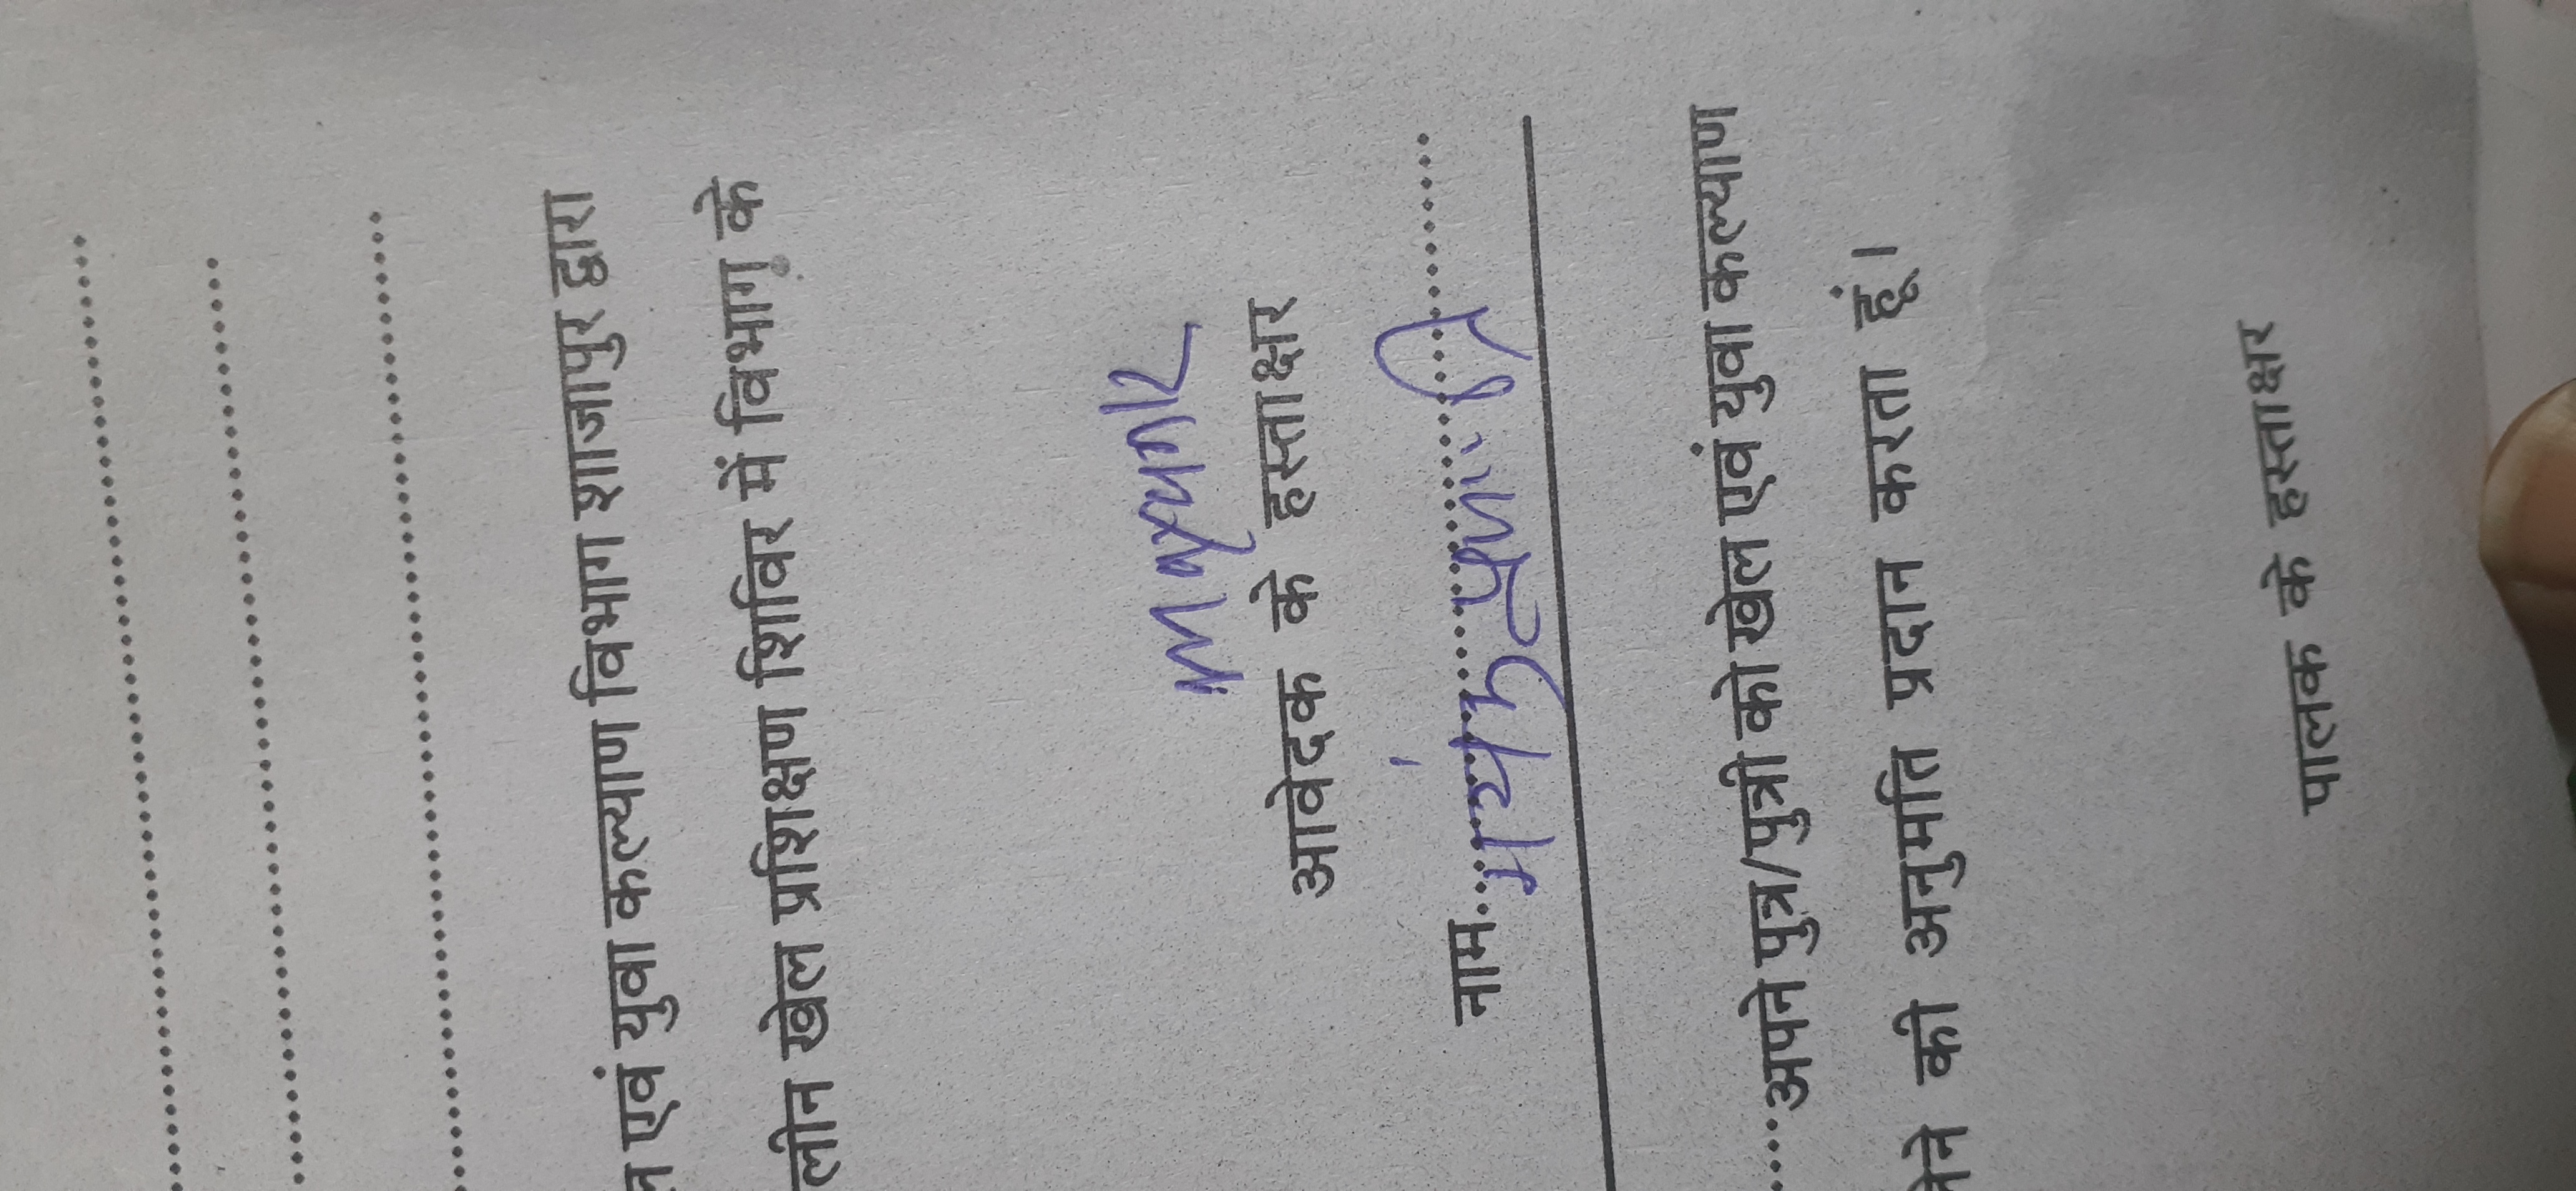 एवं युवा कल्याण विभाग शाजापुर द्वारा
लीन खेल प्रशिक्षण शिविर में विभाग के
आवेदक के हस्ताक्षर
नाम
अपने पुत्र/पुत्री को खेल एवं युवा कल्याण
की अनुमति प्रदान करता हूं।
पालक के हस्ताक्षर